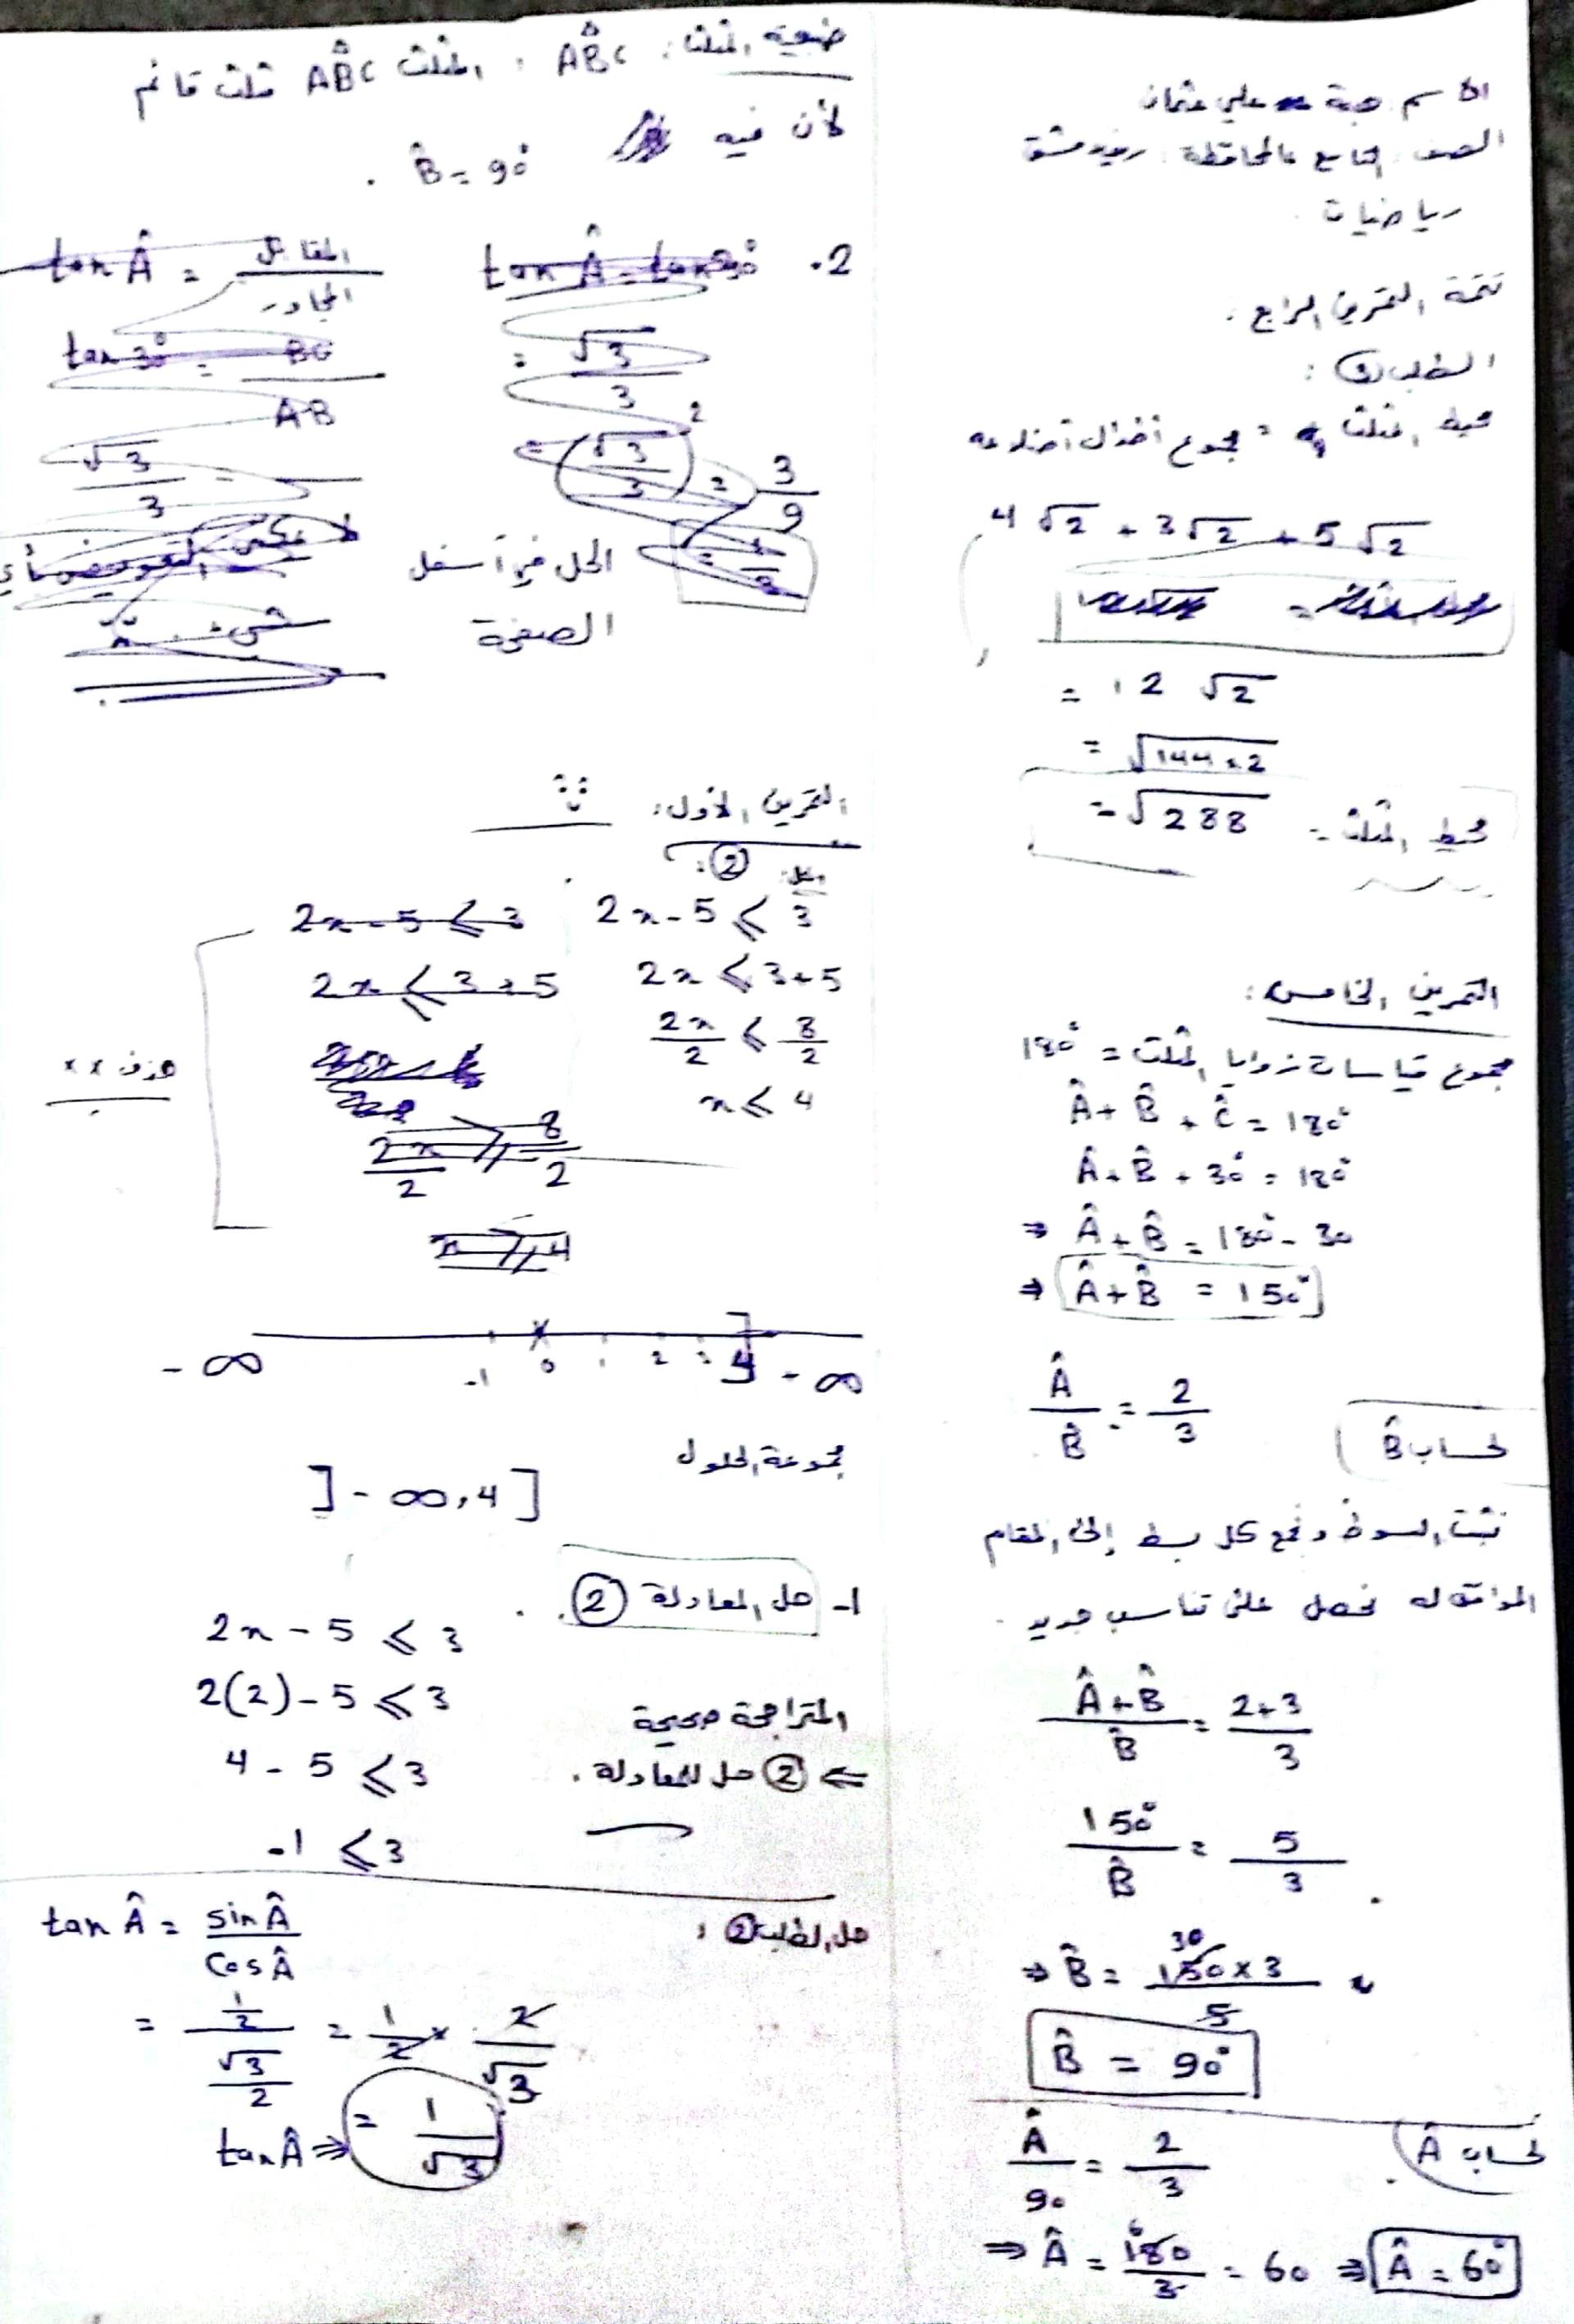 الاسم: هبة علي عثمان
الصف: التاسع المحافظة: ريف دمشق
رياضيات
تتمة التمرين الرابع:
الطلب
محيط المثلث = مجموع أطوال أضلاعه
4√2 + 3√2 + 5√2
= 12 √2
= √144×2
محيط المثلث = √288
التمرين الخامس:
مجموع قياسات زوايا المثلث = 180°
Â + B̂ + Ĉ = 180°
Â + B̂ + 30° = 180°
⇒ Â + B̂ = 180° - 30
⇒ Â + B̂ = 150°
لحساب B̂
Â/B̂ = 2/3
نثبت البسوط ونجمع كل بسط إلى المقام
الموافق له نحصل على تناسب جديد.
(Â + B̂)/B̂ = (2+3)/3
150°/B̂ = 5/3
⇒ B̂ = (150 × 3)/5
30
B̂ = 90°
لحساب Â
Â/90 = 2/3
⇒ Â = 180/3 = 60 ⇒ Â = 60°
طبيعة المثلث: AB̂C، المثلث AB̂C مثلث قائم
لأن فيه B̂ = 90°.
2. tan Â = tan 30°
= √3/3
= (√3/3)² = 3/9
tan Â = المقابل/المجاور
tan 30° = BC/AB
√3/3 =
لا يمكن التعويض بأي
شيء..
الحل في أسفل
الصفحة
التمرين الأول:
②:
2x - 5 ≤ 3
2x ≤ 3+5
2x/2 ≤ 8/2
x ≤ 4
2x - 5 ≤ 3
2x ≤ 3+5
2x/2 ≥ 8/2
x ≥ 4
حذف xx
-1 0 1 2 3 4
-∞ -∞
مجموعة الحلول
]-∞, 4]
1- حل المعادلة ②
2x - 5 ≤ 3
2(2) - 5 ≤ 3
4 - 5 ≤ 3
-1 ≤ 3
المتراجحة صحيحة
⇐ ② حل للمعادلة.
حل الطلب ②:
tan Â = sin Â/cos Â
= (1/2)/(√3/2) = 1/2 × 2/√3
tan Â ⇒ = 1/√3